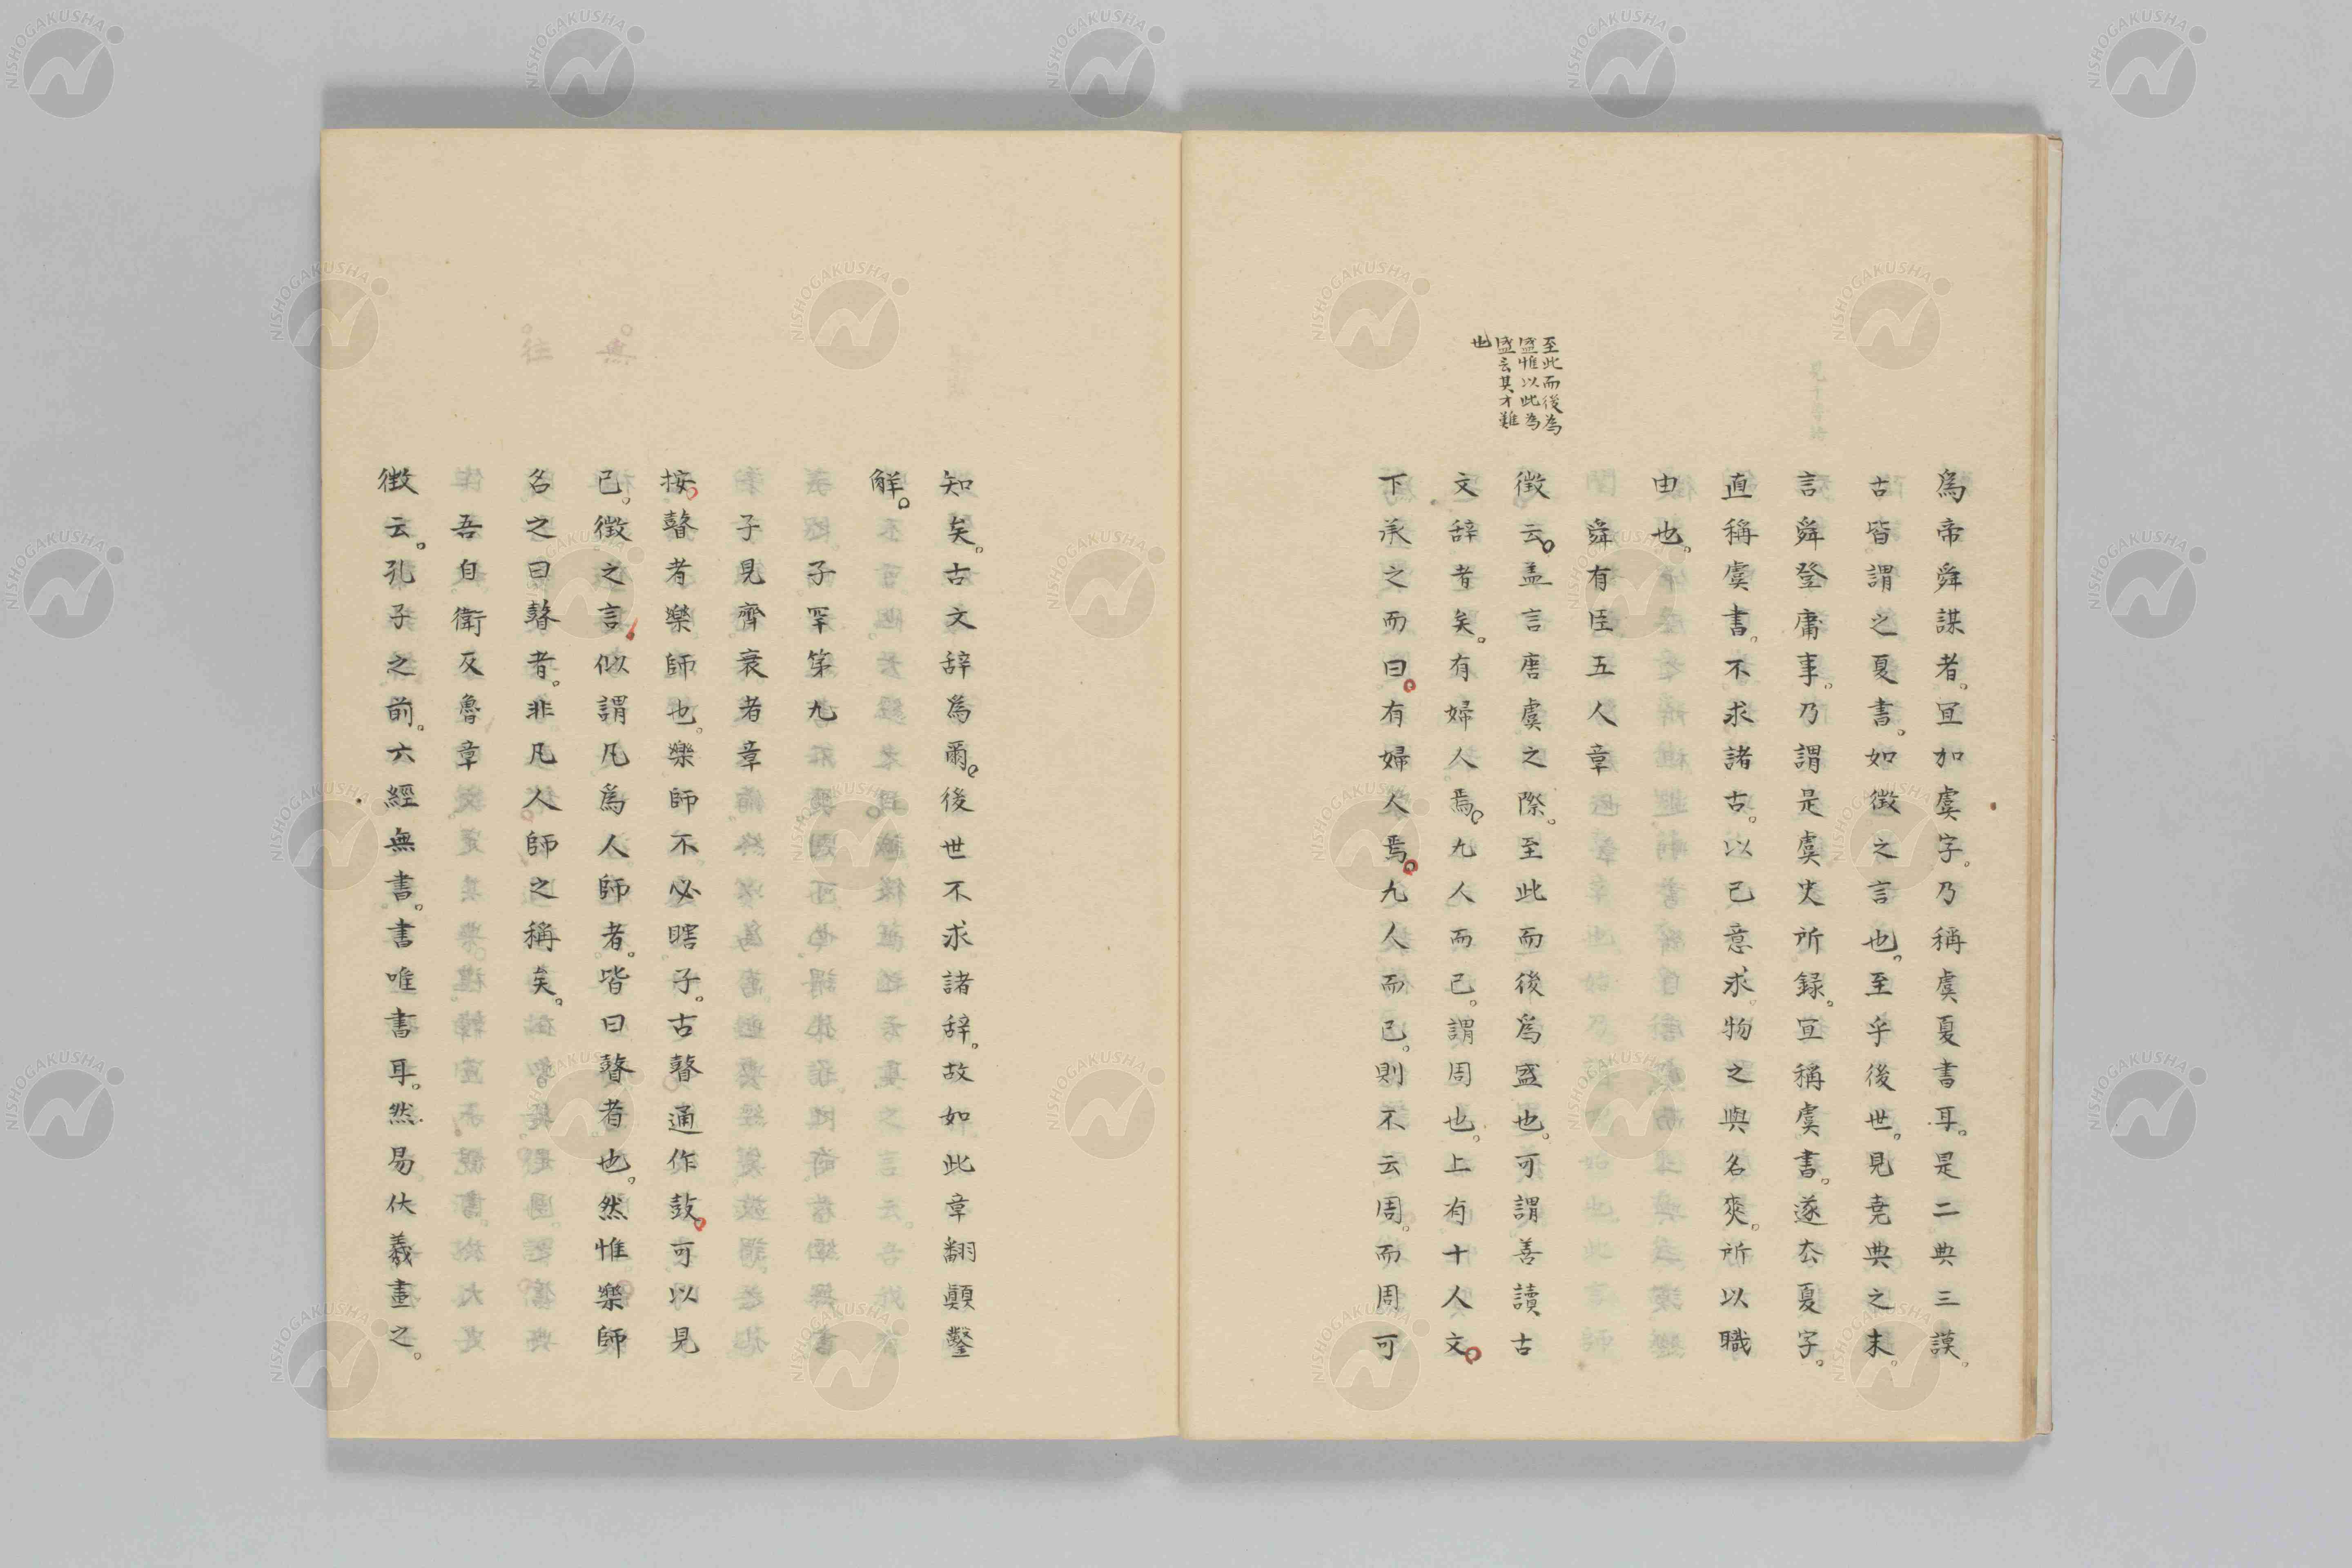 為帝舜謀者。宜加虞字。乃稱虞夏書耳。是二典三謨。
古皆謂之夏書。如徴之言也。至乎後世。見堯典之末。
言舜登庸事。乃謂是虞史所録。宜稱虞書。遂厺夏字。
直稱虞書。不求諸古。以己意求。物之與名爽。所以職
由也。
舜有臣五人章
至此而後為
盛惟以此為
盛云其才難
也
徴云。盖言唐虞之際。至此而後為盛也。可謂善讀古
文辞者矣。有婦人焉。九人而已。謂周也。上有十人文。
下承之而曰。有婦人焉。九人而已。則不云周。而周可
知矣。古文辞為爾。後世不求諸辞。故如此章翻顛鑿
解。
子罕第九
子見齊衰者章
按。瞽者樂師也。樂師不必瞎子。古瞽通作鼓。可以見
已。徴之言。似謂凡為人師者。皆曰瞽者也。然惟樂師
名之曰瞽者。非凡人師之稱矣。
吾自衛反魯章
徴云。孔子之前。六經無書。書唯書耳。然易伏羲畫之。
NISHOGAKUSHA